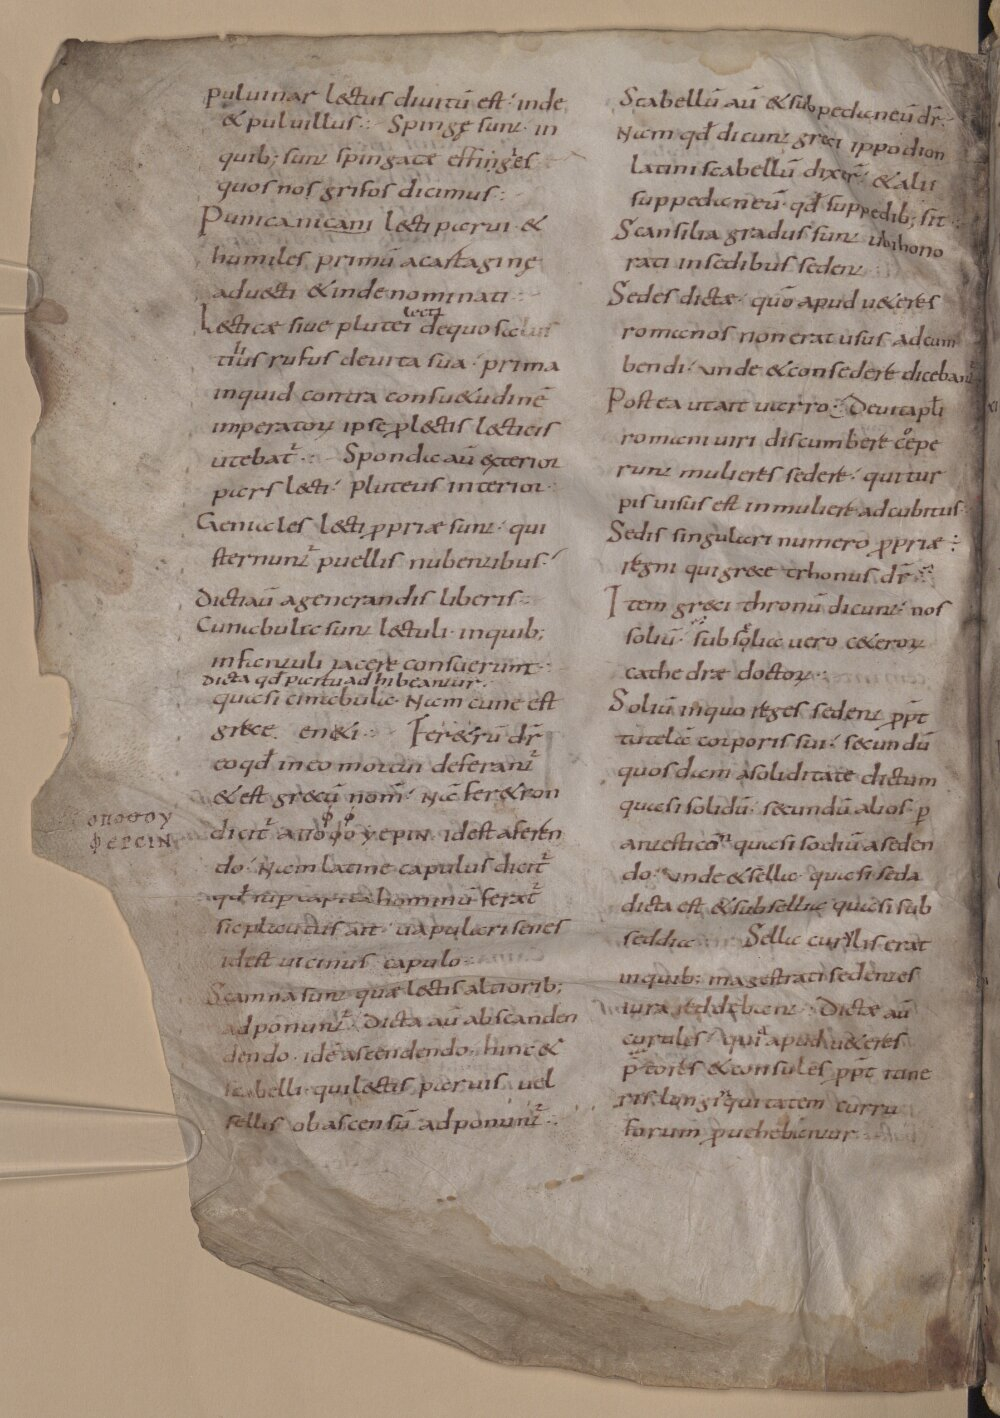 pulvinar lectus divitū est· inde
& pulvillus·: Spingę sunt in
quib; sunt spingatae effingies
quos nos grifos dicimus·:
Punicanicani lecti parvi &
humiles primū a cartagine
advecti & inde nominati·:
lecti
Lecticae sive plutei de quo
tius rufus de vita sua· prima
inquid contra consuetudinē
imperatorū ipse ꝓ lectis lecticis
utebat᷑·: Sponda aū exterior
pars lecti· Pluteus interior·
Geniales lecti ꝓpriae sunt· qui
sternunt᷑ puellis nubentibus·
Dicti aū a generandis liberis·:
Cunabula sunt lectuli· in quib;
infantuli iacere consuerunt·:
Dicta qd̄ partui adhibeantur·:
quasi cinabula· Nam cune est
grece· enei·: Feretrū dr̄
eo qd̄ in eo mortui deferant᷑
& est grecū nom̄· Nā feretron
dicit᷑ ΑΠΟ ΦΟΥ ΕΡΙΝ id est a feren
do· Nam latine capulus dicit᷑
qd̄ sup capita hominū ferat᷑
sic plautus ait· ua pulari senes
id est vicinus capulo·:
Scamna sunt quae lectis altiorib;
adponunt᷑· Dicta aū ab scanden
dendo· idē ascendendo· hinc &
scabelli· qui lectis parvis vel
sellis ob ascensū adponunt᷑·:
ΟΠΟΦΟΥ
ΦΕΡΕΙΝ
Scabellū aū & subpedaneū dr̄·
Nam qd̄ dicunt greci ippodion
latini scabellū dixer̄· & alii
suppedaneū· qd̄ sup pedib; sit·:
Scansilia gradus sunt ubi hono
rati in sedibus sedent·
Sedes dictae· quō apud veteres
romanos non erat usus adcum
bendi· unde & considere diceban᷑
Postea ut ait varro· De vita pl̄i
romani viri discumbere coepe
runt mulieres sedere· qui tur
pis visus est in muliere adcubitus·
Sedis singulari numero ꝓpriae·:
regni qui grece trhonus dr̄·:
Item greci thronū dicunt· nos
soliū· subsolia vero ceterorū
cathedrae doctorū·:
Soliū in quo reges sedent ꝓpt̄
tutela corporis sui· secundū
quosdam a soliditate dictum
quasi solidū· secundū alios· ꝑ
antesticon quasi sodiū a seden
do· unde & sella· quasi seda
dicta est & subsellia quasi sub
seddia·: Sella curylis erat
in quib; magestrati sedentes
iura reddebant· Dictae aū
curules· quia apud veteres
p̄tores & consules ꝓpt̄ itine
ris longiquitatem curru
forum ꝓuehebantur·